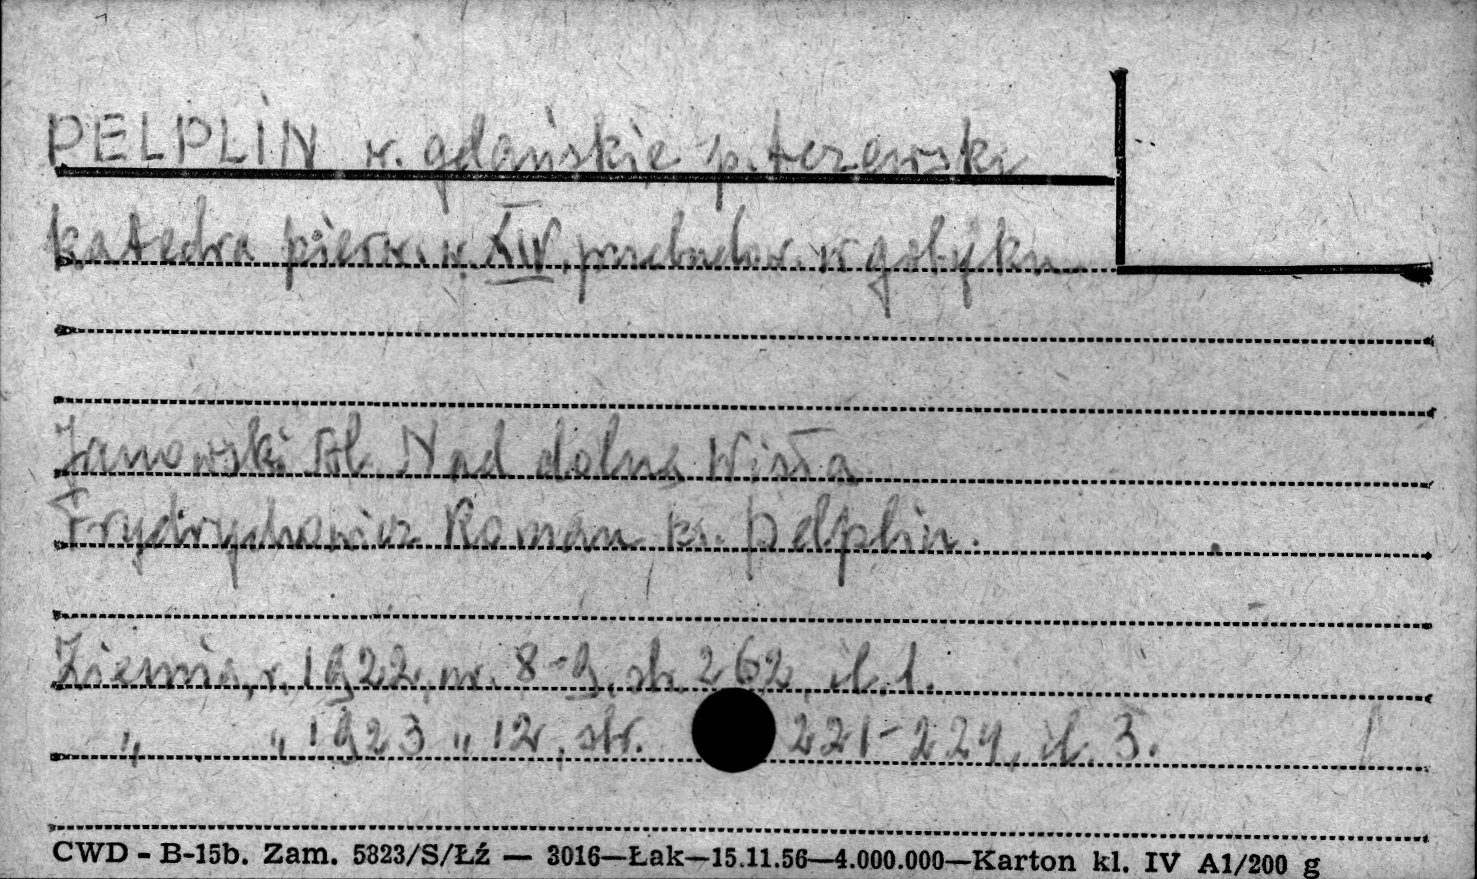 PELPLIN w. gdańskie p. tczewski
katedra pierw. w. XIV. przebudow. w gotyku
Janowski Al. Nad dolną Wisłą
Frydrychowicz Roman ks. Pelplin.
Ziemia, r. 1922, nr. 8-9, str. 262, il. 1.
„ „ 1923 „ 12, str. 221-224, il. 3.
CWD - B-15b. Zam. 5823/S/Łź — 3016—Łak—15.11.56—4.000.000—Karton kl. IV A1/200 g